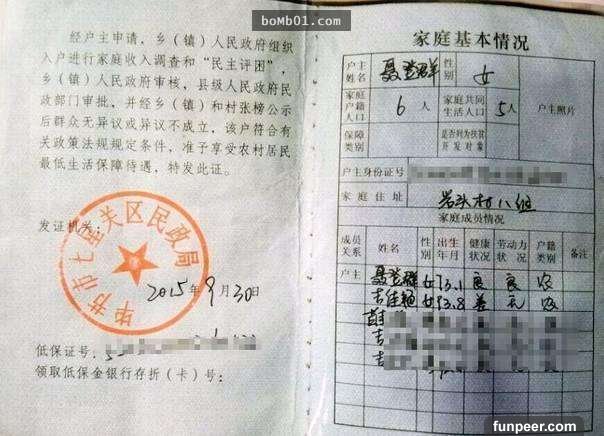 boMb01.com
经户主申请,乡(镇)人民政府组织
入户进行家庭收入调查和“民主评困”,
乡(镇)人民政府审核,县级人民政府民
政部门审批,并经乡(镇)和村张榜公示
后群众无异议或异议不成立,该户符合有
关政策法规规定条件,准予享受农村居民
最低生活保障待遇,特发此证。
发证机关:
毕节市七星关区民政局
2015年9月30日
低保证号:
领取低保金银行存折(卡)号:
家庭基本情况
户主姓名 聂登群 性别 女
户主照片
家庭户籍人口 6人 家庭共同生活人口 5人
保障类别 是否列为扶贫开发对象
户主身份证号
家庭住址 岩头村八组
家庭成员情况
成员关系 姓名 性别 出生年月 健康状况 劳动力状况 户籍类别 备注
户主 聂登群 女 73.1 良 良 农
吉佳 女 93.8 差 无 农
funpeer.com